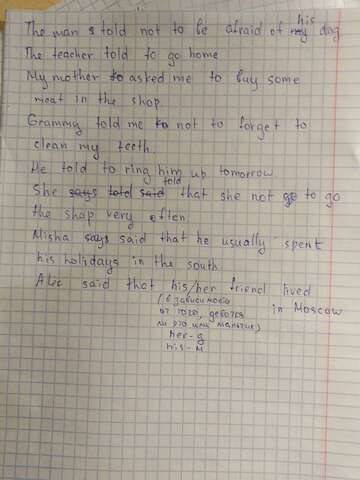 The man told not to be afraid of his dog
The teacher told to go home
My mother asked me to buy some
meat in the shop.
Grammy told me not to forget to
clean my teeth.
He told to ring him up tomorrow.
She told that she not go to go
the shop very often
Misha says said that he usually spent
his holidays in the south
Alec said that his/her friend lived
in Moscow
(в зависимости
от того, девочка
ли это или мальчик)
her - д
his - м